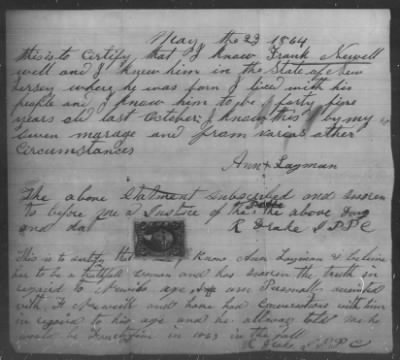 May the 23 1864
this is to Certify that I know Frank Newell
well and I knew him in the State of New
Jersey where he was forn I lived with his
people and I know him to be forty five
years old last October I know this by my
own marage and from varias other
Circumstances
Ann Layman
The above Statment Subscribed and sworn
to before me a Justice of the Peace the above
and da R Drake J P P C
This is to certify that I know Ann Layman & believe
her to be a truthfull woman and has sworn the truth in
regard to Newells age I am Personally acquainted
with F Newell and have had Conversations with him
in regard to his age and he allways told me he
would be in 1863 in the fall
R J P C